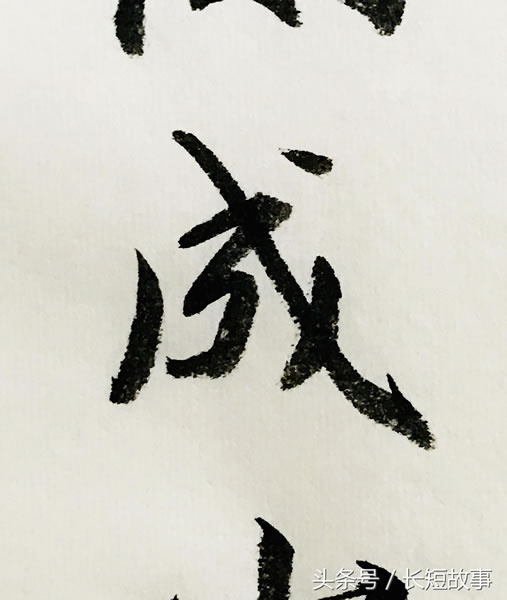 成
头条号 / 长短故事